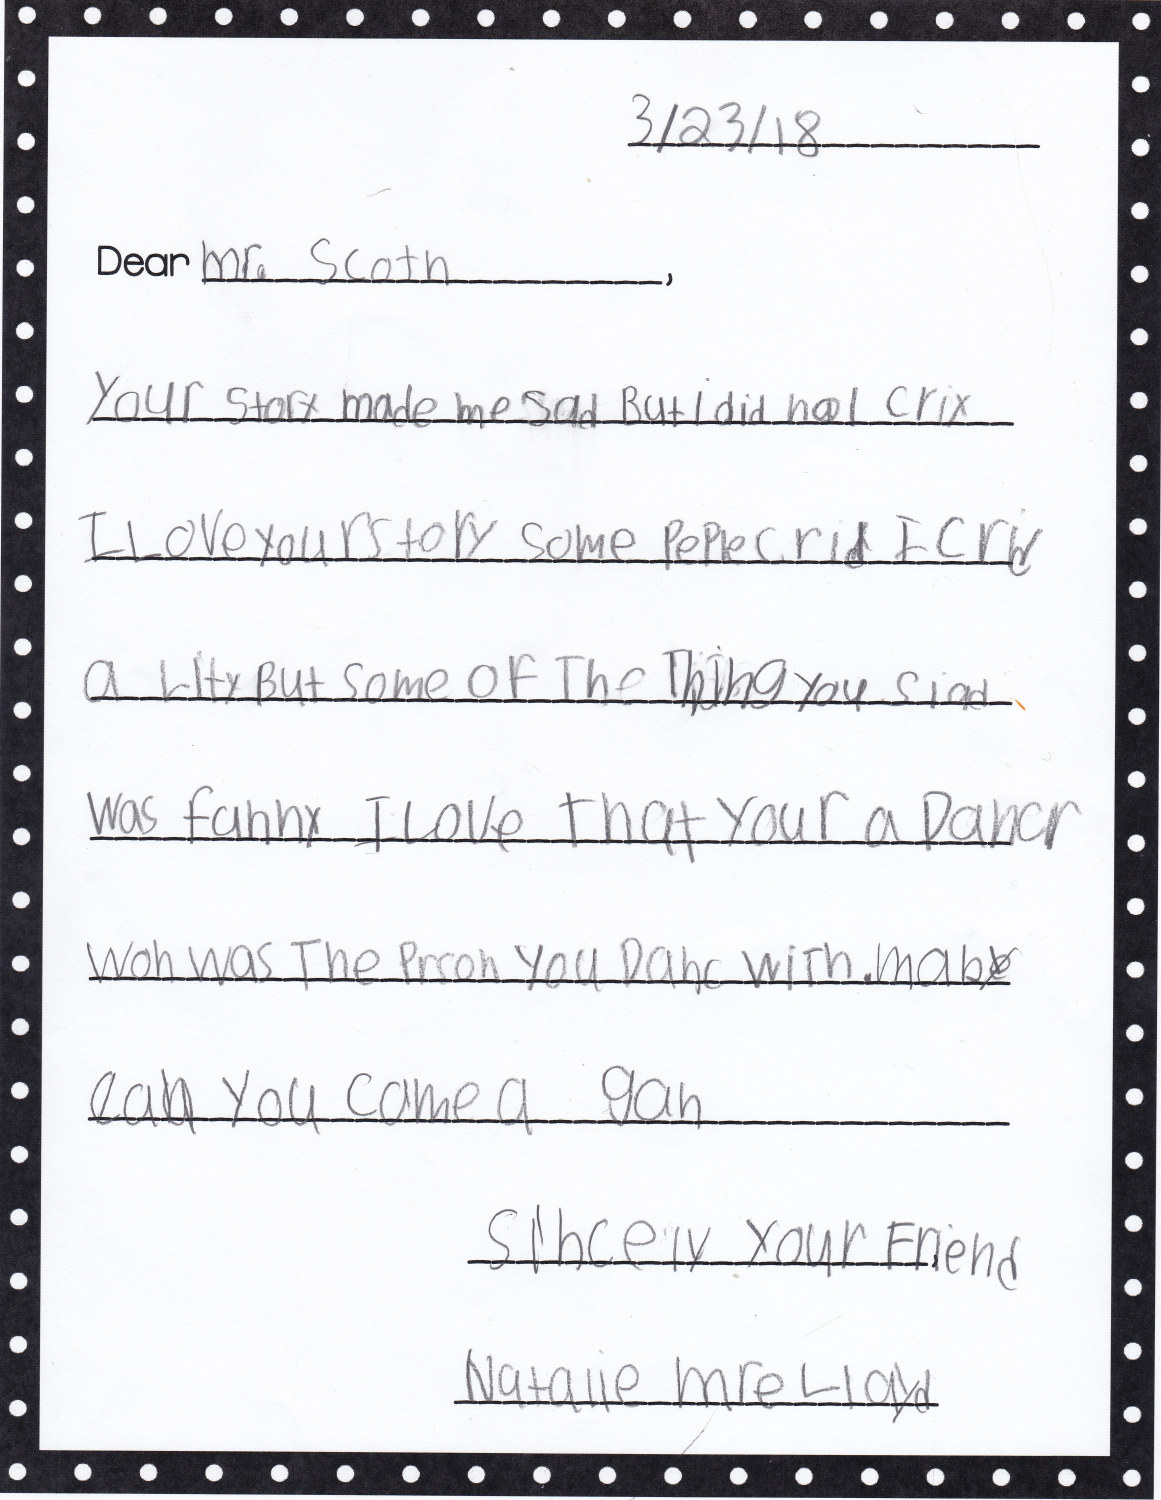 3/23/18
Dear Mr. Scoth,
Your story made me sad But i did not Criy
I Love your story some PePle crid I Crid
a Lity But some OF The Thing you siad
was fanny I Love that your a Dancr
Woh was The Prson You Danc with. maby
can You came a gan
Sincerly Your Friend
Natalie Mre Lloyd